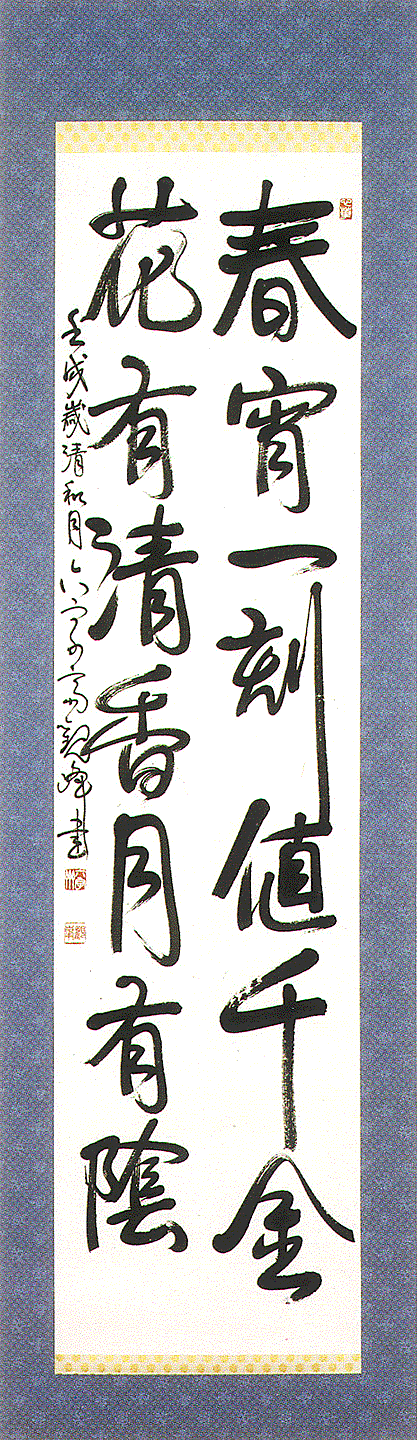 春宵一刻値千金
花有清香月有陰
壬戌歳清和月六
峰書